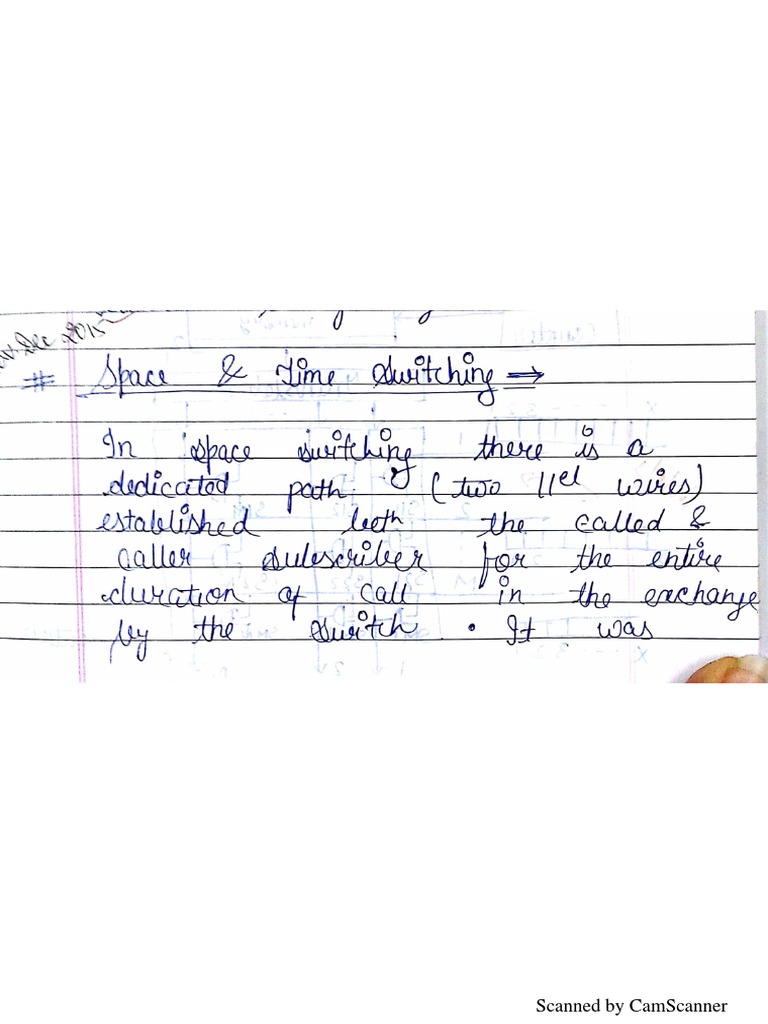 Dec 2015
# Space & Time Switching →
In space switching there is a
dedicated path (two llel wires)
established betn the called &
caller subscriber for the entire
duration of call in the exchange
by the switch. It was
Scanned by CamScanner